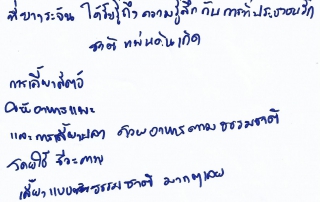 ที่บางระจัน ได้รับรู้ถึงความรู้สึกกับการที่ประชาชนรัก
ชาติ แผ่นดินเกิด
การเลี้ยงสัตว์
ให้อาหารแพะ
และการเลี้ยงปลา ด้วยอาหารตามธรรมชาติ
โดยใช้ ชีวะภาพ
เลี้ยงแบบธรรมชาติ มากๆเลย